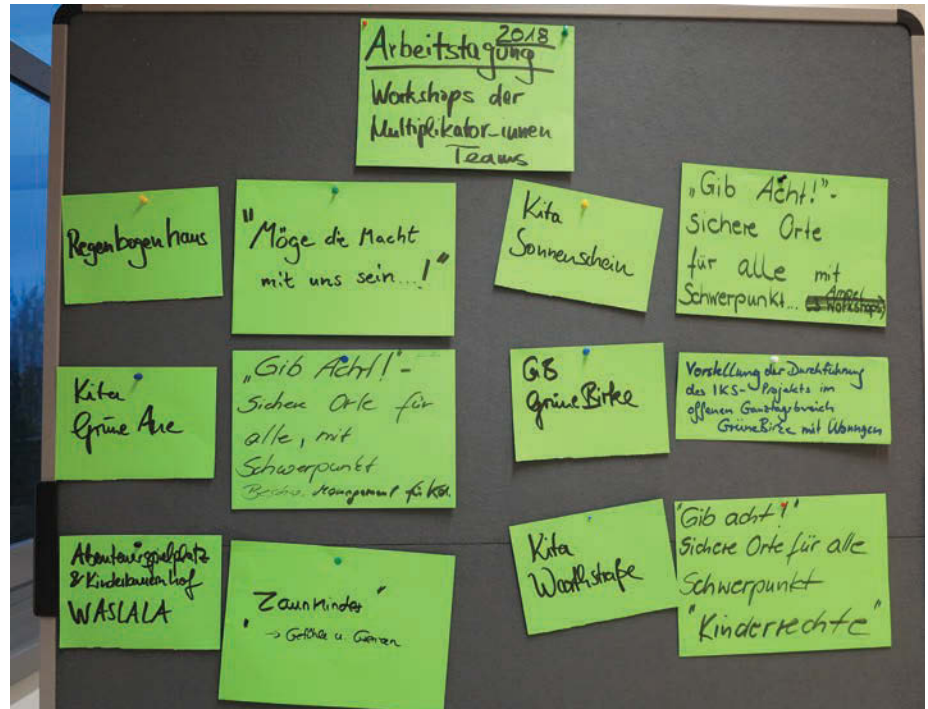 Arbeitstagung 2018
Workshops der
Multiplikator_innen
Teams
Regenbogenhaus
"Möge die Macht
mit uns sein...!"
Kita
Sonnenschein
„Gib Acht!"-
sichere Orte
für alle mit
Schwerpunkt...
Kita
Grüne Aue
„Gib Acht!"-
Sichere Orte für
alle, mit
Schwerpunkt
Management für Ki
GB
Grüne Birke
Vorstellung der Durchführung
des IKS-Projekts im
offenen Ganztagsbereich
Grüne Birke mit Übungen
Abenteuerspielplatz
& Kinderbauernhof
WASLALA
"Zaunkinder"
→ Gefühle u. Grenzen
Kita
Woorthstraße
"Gib acht!"
Sichere Orte für alle
Schwerpunkt
"Kinderrechte"